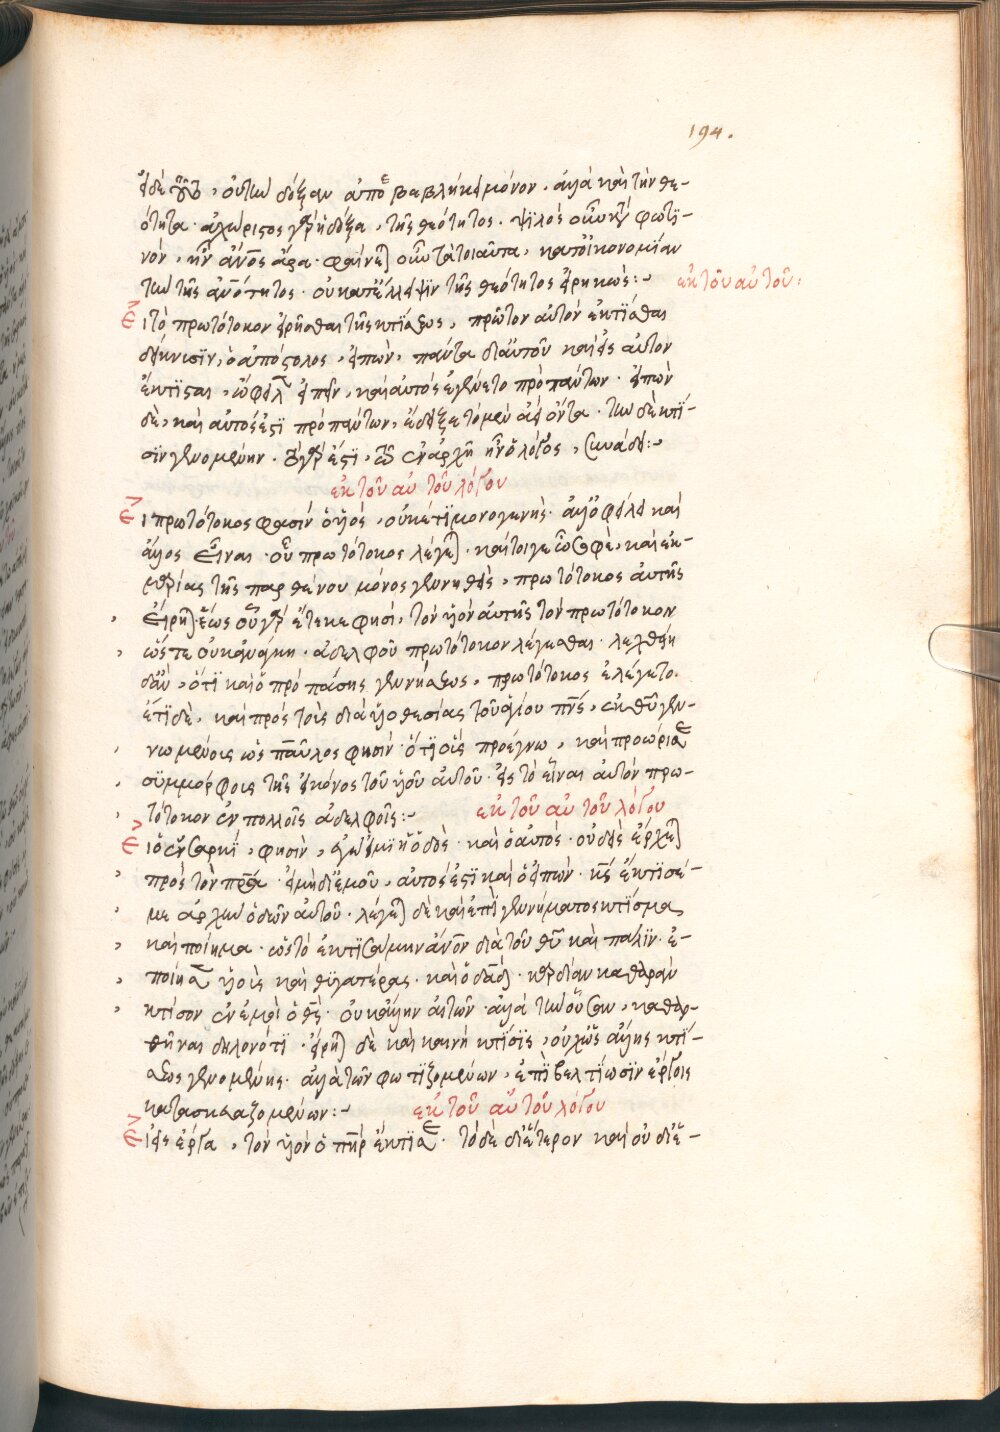 194.
εἰ δὲ τοῦτο, οὐ τὴν δόξαν ἀποβέβληκε μόνον. ἀλλὰ καὶ τὴν θε-
ότητα. ἀχώριστος γὰρ ἡ δόξα, τῆς θεότητος. ψιλὸς οὖν κατὰ φωτει-
νόν, ἦν ἄνος ἄρα. φαίνεται οὖν τὰ τοιαῦτα, κατ οἰκονομίαν
τὴν τῆς ἀνότητος. οὐ κατ ἔλλειψϊν τῆς θεότητος εἰρηκώς:-
ἐκ τοῦ αὐτοῦ:
Εἰ τὸ πρωτότοκον εἰρῆσθαι τῆς κτίσεως, πρῶτον αὐτὸν ἐκτίσθαι
δείκνυσϊν, ὁ ἀπόστολος, εἰπών, πάντα δι αὐτοῦ καὶ εἰς αὐτὸν
ἔκτϊσται, ὤφειλεν εἰπεῖν, καὶ αὐτὸς ἐγένετο πρὸ πάντων. εἰπὼν
δὲ, καὶ αὐτός ἐστϊ πρὸ πάντων, ἔδειξε τὸν μὲν ἀεὶ ὄντα. τὴν δὲ κτί-
σϊν γενομένην. τὸ γὰρ ἐστϊ, τῷ ἐν ἀρχῆ ἦν ὁ λόγος, συνάδει:-
ἐκ τοῦ αὐτοῦ λόγου
Εἰ πρωτότοκος φασὶν ὁ υἱὸς, οὐκέτϊ μονογενής. ἀλλ ὀφείλει καὶ
ἄλλος εἶναι. οὗ πρωτότοκος λέγεται. καίτοιγε ὦ σοφὲ, καὶ ἐκ
μαρίας τῆς παρθένου μόνος γεννηθεὶς, πρωτότοκος αὐτῆς
εἴρηται. ἕως οὗ γὰρ ἔτεκε φησὶ, τὸν υἱὸν αὐτῆς τὸν πρωτότοκον
ὥστε οὐκ ἀνάγκη. ἀδελφοῦ πρωτότοκον λέγεσθαι.
ὅτϊ καὶ ὁ πρὸ πάσης γεννήσεως, πρωτότοκος ἐλέγετο.
ἔτϊ δὲ, καὶ πρὸς τοὺς διὰ υἱοθεσίας τοῦ ἁγίου πνς, ἐκ θῦ γεν-
νωμένοις ὡς παῦλος φησὶν. ὅτϊ οὓς προέγνω, καὶ προώρισε
συμμόρφους τῆς εἰκόνος τοῦ υἱοῦ αὐτοῦ. εἰς τὸ εἶναι αὐτὸν πρω-
τότοκον ἐν πολλοῖς ἀδελφοῖς:-
ἐκ τοῦ αὐτοῦ λόγου
Εἰ ὁ ἐν σαρκὶ, φησὶν, ἐγώ εἰμϊ ἡ ὁδὸς. καὶ ὁ αὐτὸς. οὐδεὶς ἔρχεται
πρὸς τὸν πρα. εἰ μὴ δι ἐμοῦ, αὐτός ἐστϊ καὶ ὁ εἰπών. κς ἔκτισέ-
με ἀρχὴν ὁδῶν αὐτοῦ. λέγεται δὲ καὶ ἐπὶ γεννήματος κτίσμα,
καὶ ποίημα. ὡς τὸ ἐκτϊσάμην ἄνον διὰ τοῦ θῦ καὶ πάλϊν. ἐ-
ποίησεν υἱοὺς καὶ θϋγατέρας. καὶ ὁ δαδ. καρδίαν καθαρὰν
κτίσον ἐν ἐμοὶ ὁ θς. οὐκ ἄλλην αἰτῶν. ἀλλὰ τὴν οὖσαν, καθαρ-
θῆναι δηλονότϊ. εἴρηται δὲ καὶ καινὴ κτίσϊς, οὐχ ὡς ἄλλης κτί-
σεως γενομένης. ἀλλὰ τῶν φωτϊζομένων, ἐπὶ βελτίωσϊν ἔργοις
κατασκευαζομένων:-
ἐκ τοῦ αὐτοῦ λόγου
Εἰ εἰς ἔργα, τὸν υἱὸν ὁ πηρ ἔκτϊσε. τὸ δὲ δι ἕτερον καὶ οὐ δι ἑ-